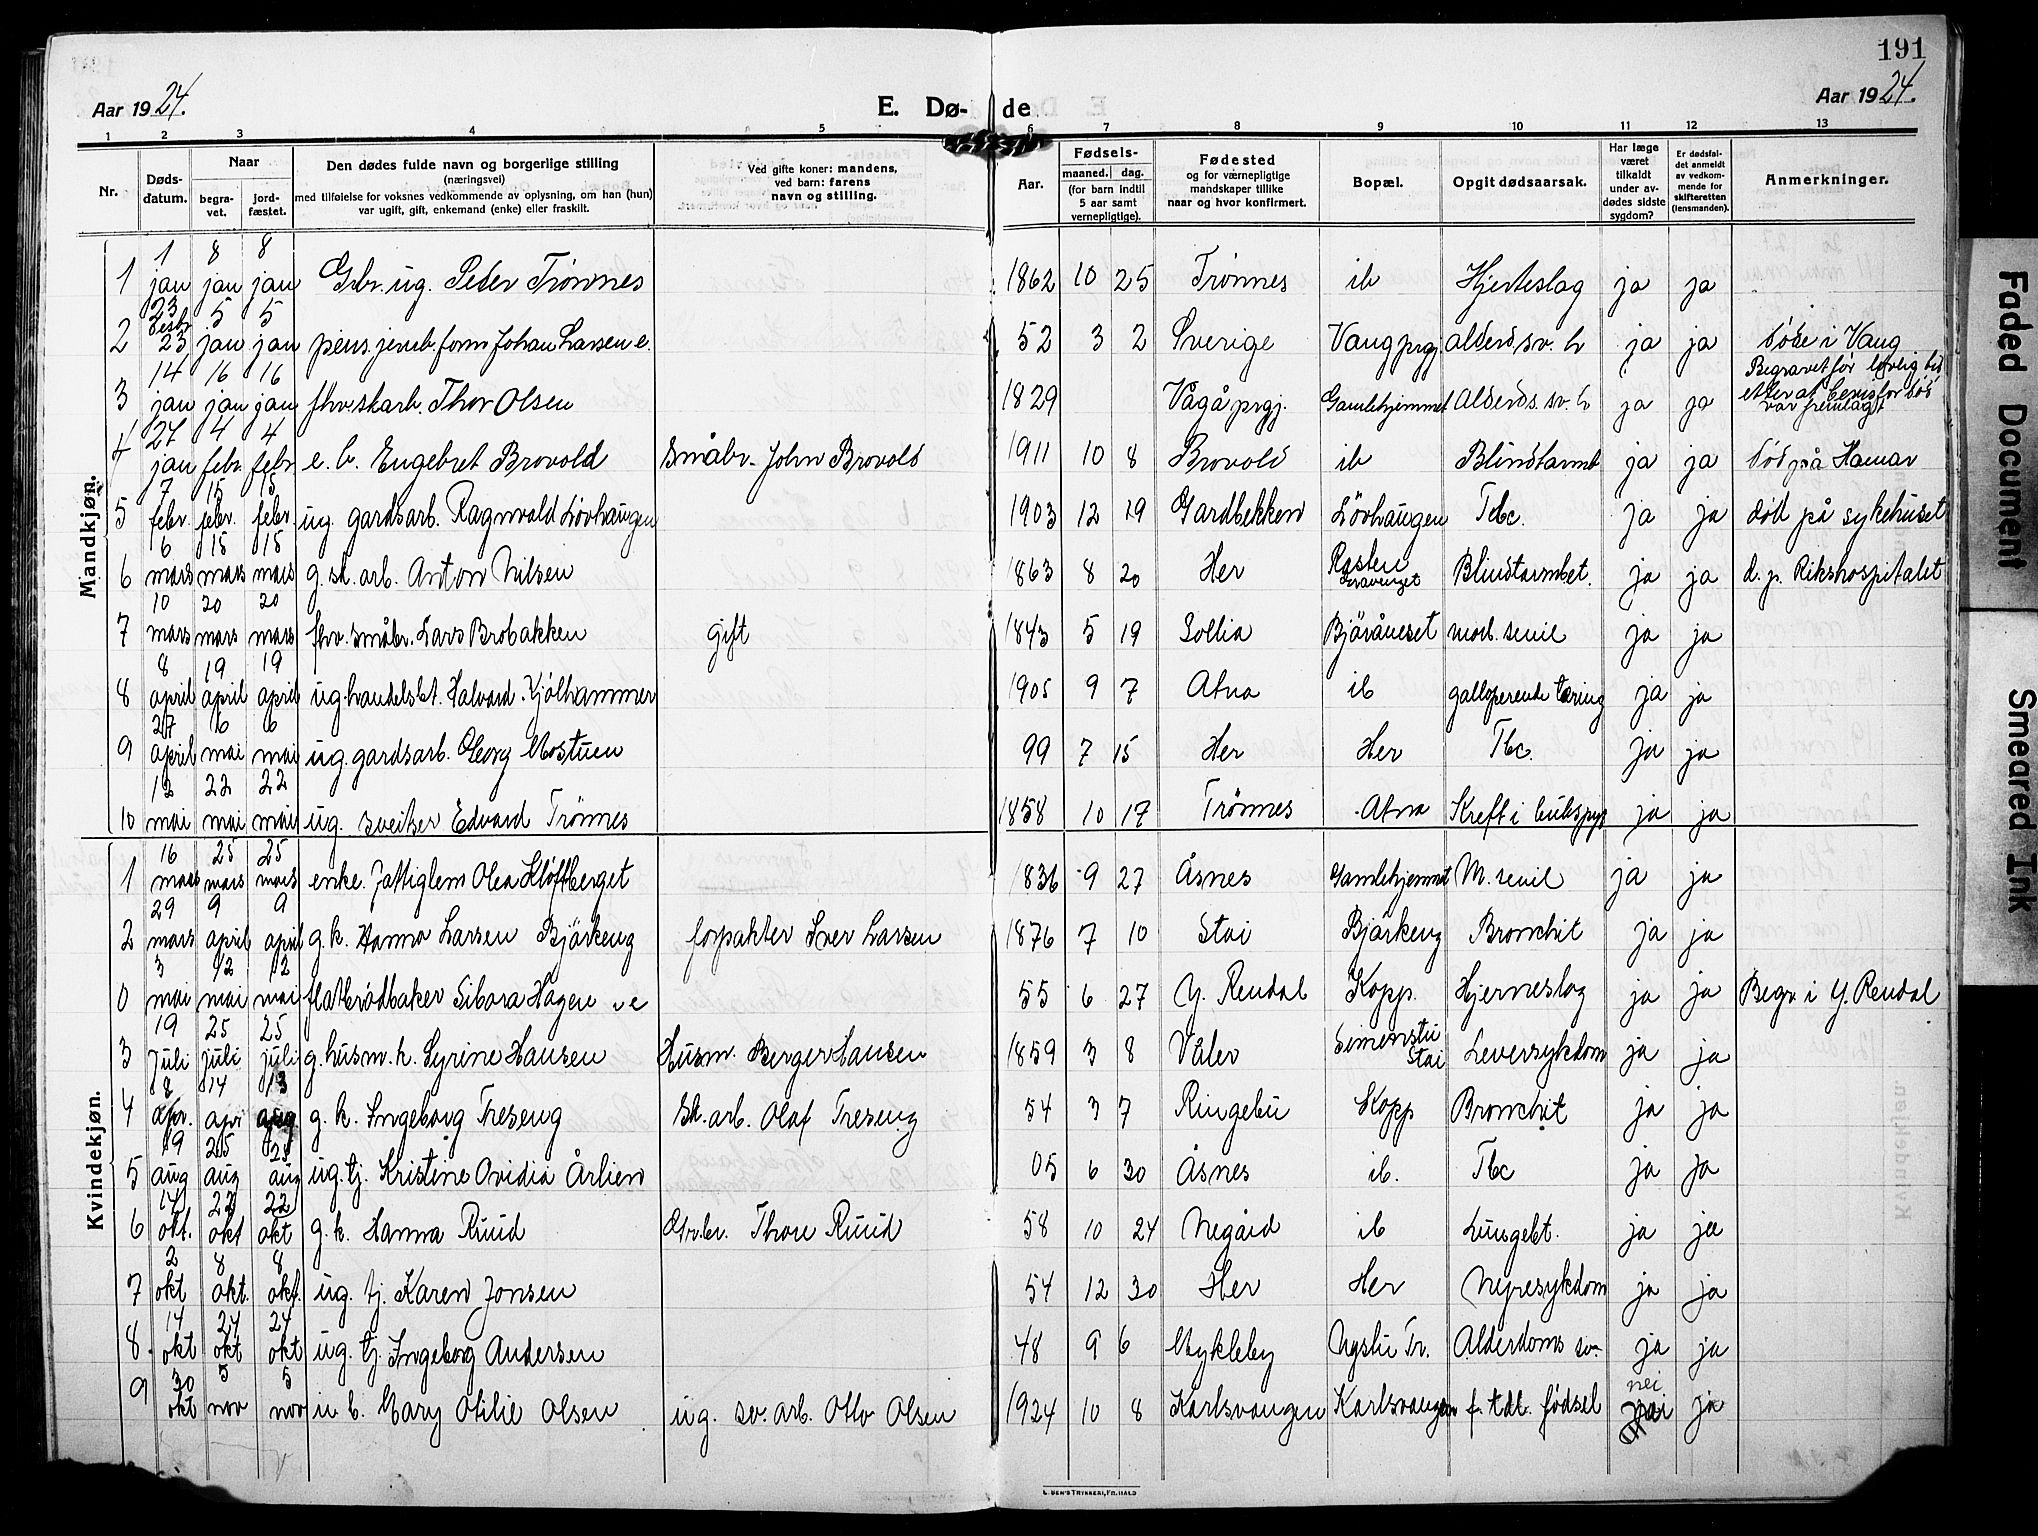 191
Aar 1924.
E. Dø- de
Aar 1924.
1 2 3 4 5 6 7 8 9 10 11 12 13
Nr.
Døds-datum.
Naar
begra-vet.
jord-fæstet.
Den dødes fulde navn og borgerlige stilling
(næringsvei)
med tilføielse for voksnes vedkommende av oplysning, om han (hun)
var ugift, gift, enkemand (enke) eller fraskilt.
Ved gifte koner: mandens,
ved barn: farens
navn og stilling.
Aar.
Fødsels-
maaned. dag.
(for barn indtil
5 aar samt
vernepligtige).
Fødested
og for værnepligtige
mandskaper tillike
naar og hvor konfirmert.
Bopæl.
Opgit dødsaarsak.
Har læge
været
tilkaldt
under av-
dødes sidste
sygdom?
Er dødsfal-
det anmeldt
av vedkom-
mende for
skifteretten
(lensmanden).
Anmerkninger.
Mandkjøn.
1 1 jan 8 jan 8 jan Gbr. ug. Peder Trønnes 1862 10 25 Trønnes ib Hjerteslag ja ja
2 23 desbr 23 5 jan 5 jan pens. jernb. form Johan Larsen e. 52 3 2 Sverige Vang prgj alderd. sv. h ja ja døde i Vang
3 14 jan 16 jan 16 jan fhv. skarb. Thor Olsen 1829 Vågå prgj. Gamlehjemmet Alderds. sv. h ja ja Begravet før lovlig tid
etter at bevis for død
var fremlagt
4 27 jan 4 febr. 4 febr e. b. Engebret Brovold Småbr. John Brovold 1911 10 8 Brovold ib Blindtarmb ja ja død på Hamar
5 7 febr. 15 febr. 15 febr ug. gardsarb. Ragnvald Lövhaugen 1903 12 19 Gardbekken Lövhaugen Tbc. ja ja död på sykehuset
6 6 mars 15 mars 15 mars g. sk. arb. Anton Nilsen 1863 8 20 Her Rasten Blindtarmbet. ja ja d. p. Rikshospitalet
7 10 mars 20 mars 20 mars fhv. småbr. Lars Brobakken gift 1843 5 19 Sollia Björåneset marb. senil ja ja
8 8 april 19 april 19 april ug. handelsbt. Halvard Kjölhammer 1905 9 7 Atna ib galloperende tæring ja ja
9 27 april 6 mai 6 mai ug. gardsarb. Georg Mostuen 99 7 15 Her Her Tbc. ja ja
10 12 mai 22 mai 22 mai ug. sveitser Edvard Trönnes 1858 10 17 Trönnes Atna Kreft i bukspyt ja ja
Kvindekjøn.
1 16 mars 25 mars 25 mars enke. fattiglem Olea Kløftberget 1836 9 27 Åsnes Gamlehjemmet M. senil ja ja
2 29 mars 9 april 9 april g. k. Hanna Larsen Björkeng forpakter Iver Larsen 1876 7 10 Stai Björkeng Bronchit ja ja
0 3 mai 12 mai 12 mai flatbrödbaker Sibora Hagen e 55 6 27 Y. Rendal Kopp. Hjerneslag ja ja Begr i Y. Rendal
3 19 juli 25 juli 25 juli g. husm. k. Syrine Hansen Husm. Berger Hansen 1859 3 8 Våler Simenstu
Stai Leversykdom ja ja
4 8 apr. 14 apr 13 aug g. k. Ingeborg Treseng Sk. arb. Olaf Treseng 54 3 7 Ringebu Kopp Bronchit ja ja
5 19 aug 25 aug 25 aug ug. tj. Kristine Ovidia Årlien 05 6 30 Åsnes ib. Tbc ja ja
6 14 okt. 22 okt 22 okt g. k. Hanna Ruud Gbr. Thore Ruud 58 10 24 Negård ib Lungebt. ja ja
7 2 okt 8 okt. 8 okt. ug. tj. Karen Jonsen 54 12 30 Her Her Nyresykdom ja ja
8 14 okt 24 okt 24 okt ug. tj. Ingeborg Andersen 48 9 6 Mykleby Nystu Tr. Alderdoms sv. ja ja
9 30 okt 5 nov 5 nov u b. Mary Otilie Olsen ug. sv. arb. Otto Olsen 1924 10 8 Karlsvangen Karlsvangen f. tdl. födsel nei ja
Faded Document
Smeared Ink